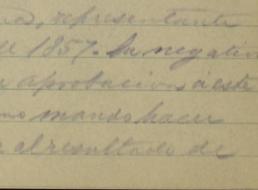 representante
1857. La negativa
aprobacion á este
mando hacer
al resultado de